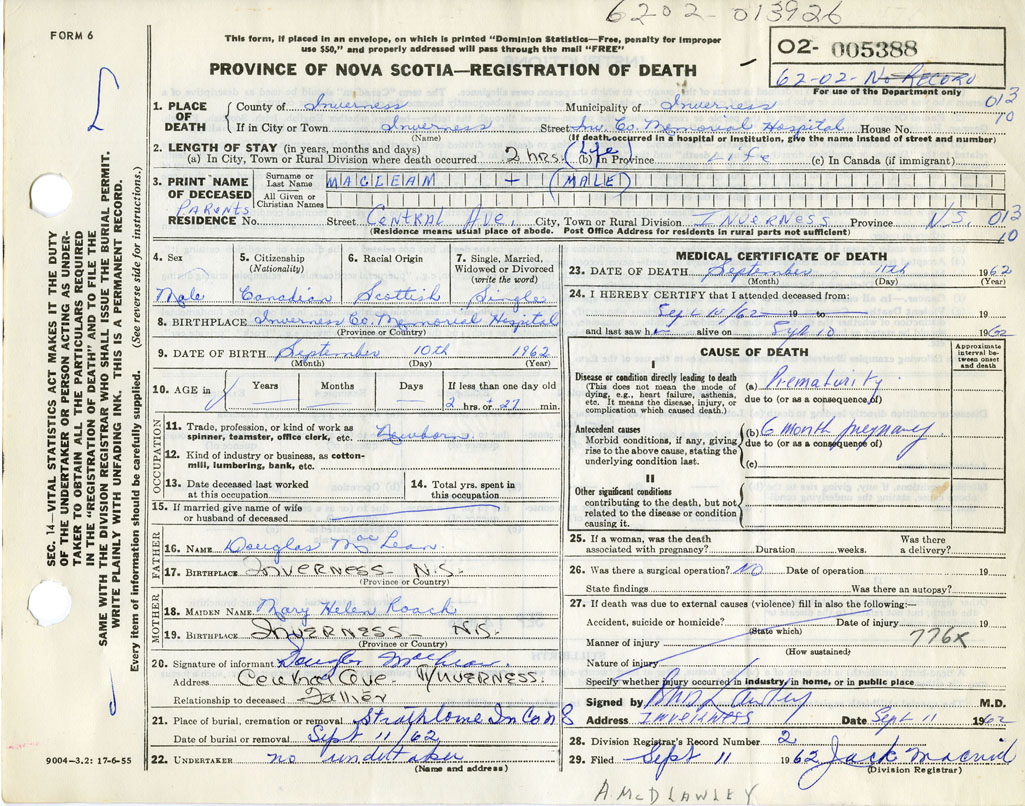 6202-013926
FORM 6
This form, if placed in an envelope, on which is printed "Dominion Statistics—Free, penalty for improper
use $50," and properly addressed will pass through the mail "FREE"
PROVINCE OF NOVA SCOTIA—REGISTRATION OF DEATH
02- 005388
62-02- No RECORD
For use of the Department only
SEC. 14—VITAL STATISTICS ACT MAKES IT THE DUTY
OF THE UNDERTAKER OR PERSON ACTING AS UNDER-
TAKER TO OBTAIN ALL THE PARTICULARS REQUIRED
IN THE "REGISTRATION OF DEATH" AND TO FILE THE
SAME WITH THE DIVISION REGISTRAR WHO SHALL ISSUE THE BURIAL PERMIT.
WRITE PLAINLY WITH UNFADING INK. THIS IS A PERMANENT RECORD.
Every item of information should be carefully supplied. (See reverse side for instructions.)
1. PLACE OF DEATH
County of Inverness Municipality of Inverness 013
10
If in City or Town Inverness Street Inv. Co. Memorial Hospital House No.
(Name) (If death occurred in a hospital or institution, give the name instead of street and number)
2. LENGTH OF STAY (in years, months and days)
(a) In City, Town or Rural Division where death occurred 2 hrs. (Life (b) in Province Life (c) In Canada (if immigrant)
3. PRINT NAME OF DECEASED
Surname or Last Name MACLEAN — (MALE)
All Given or Christian Names
Parents
RESIDENCE No. Street Central Ave. City, Town or Rural Division INVERNESS Province N.S. 013
10
(Residence means usual place of abode. Post Office Address for residents in rural parts not sufficient)
4. Sex
Male
5. Citizenship
(Nationality)
Canadian
6. Racial Origin
Scottish
7. Single, Married,
Widowed or Divorced
(write the word)
Single
8. BIRTHPLACE Inverness Co. Memorial Hospital
(Province or Country)
9. DATE OF BIRTH September 10th 1962
(Month) (Day) (Year)
10. AGE in Years Months Days If less than one day old
2 hrs. or 27 min.
OCCUPATION
11. Trade, profession, or kind of work as
spinner, teamster, office clerk, etc. Newborn
12. Kind of industry or business, as cotton-
mill, lumbering, bank, etc.
13. Date deceased last worked
at this occupation
14. Total yrs. spent in
this occupation
15. If married give name of wife
or husband of deceased
FATHER
16. NAME Douglas MacLean
17. BIRTHPLACE INVERNESS N.S.
(Province or Country)
MOTHER
18. MAIDEN NAME Mary Helen Roach
19. BIRTHPLACE INVERNESS — N.S.
(Province or Country)
20. Signature of informant Douglas MacLean.
Address Central Ave. INVERNESS.
Relationship to deceased Father
21. Place of burial, cremation or removal Strathlorne In Co N S
Date of burial or removal Sept 11/62
22. UNDERTAKER no undertaker
(Name and address)
9004—3.2: 17-6-55
MEDICAL CERTIFICATE OF DEATH
23. DATE OF DEATH September 11th 1962
(Month) (Day) (Year)
24. I HEREBY CERTIFY that I attended deceased from:
Sept 10/62 19 to 19
and last saw h alive on Sept 10 1962
CAUSE OF DEATH
Approximate
interval be-
tween onset
and death
I
Disease or condition directly leading to death
(This does not mean the mode of
dying, e.g., heart failure, asthenia,
etc. It means the disease, injury, or
complication which caused death.)
(a) Prematurity
due to (or as a consequence of)
Antecedent causes
Morbid conditions, if any, giving
rise to the above cause, stating the
underlying condition last.
(b) 6 month pregnancy
due to (or as a consequence of)
(c)
II
Other significant conditions
contributing to the death, but not
related to the disease or condition
causing it.
25. If a woman, was the death
associated with pregnancy? Duration weeks. Was there
a delivery?
26. Was there a surgical operation? NO Date of operation 19
State findings Was there an autopsy?
27. If death was due to external causes (violence) fill in also the following:—
Accident, suicide or homicide? Date of injury 19
(State which)
776X
Manner of injury
(How sustained)
Nature of injury
Specify whether injury occurred in industry, in home, or in public place
Signed by M.D.
Address INVERNESS Date Sept 11 1962
28. Division Registrar's Record Number 2
29. Filed Sept 11 1962 Jack Macneil
(Division Registrar)